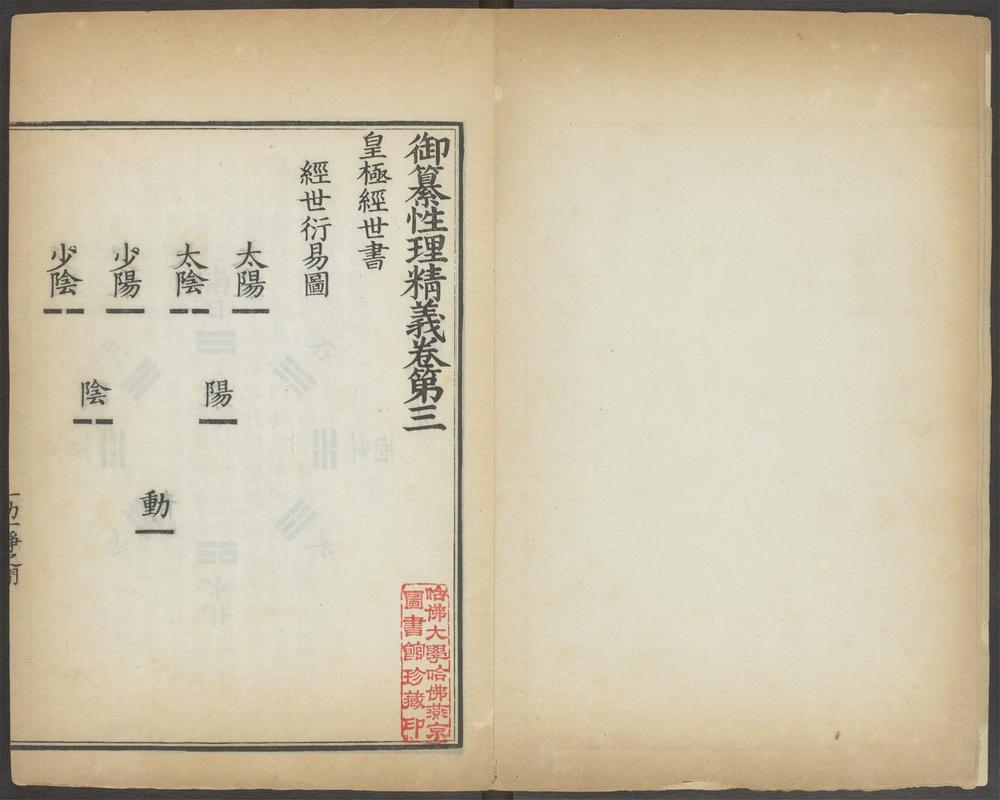 御纂性理精義卷第三
皇極經世書
經世衍易圖
太陽
太陰
少陽
少陰
陽
陰
動
一動一靜之間
哈佛大學哈佛燕京
圖書館珍藏印